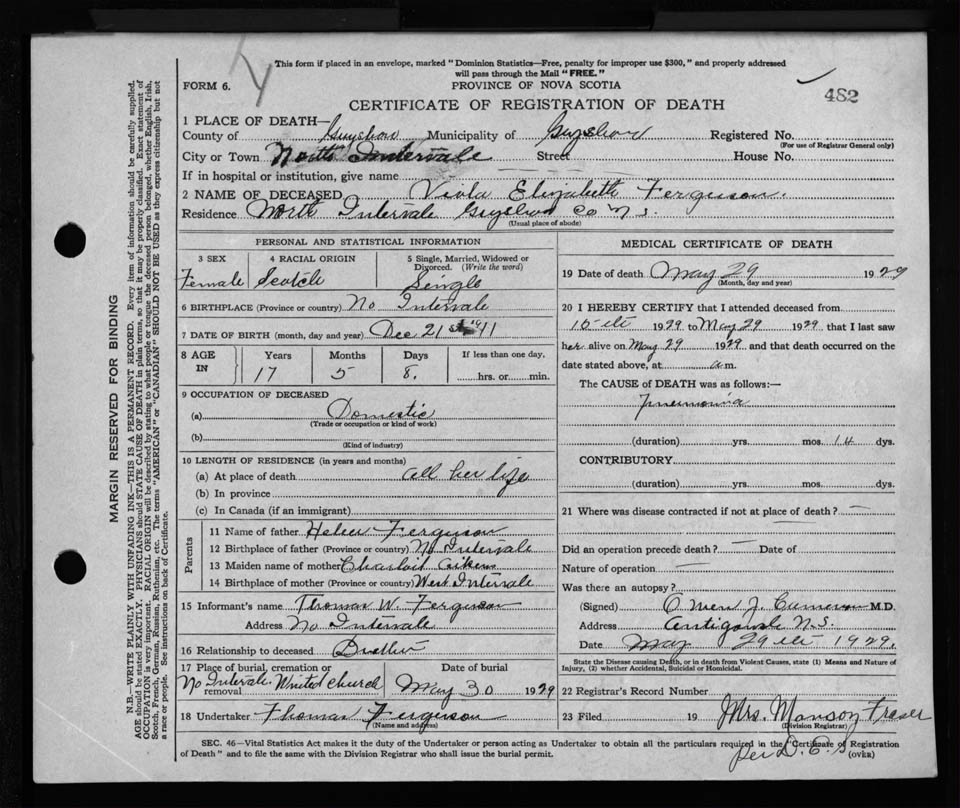 This form if placed in an envelope, marked "Dominion Statistics—Free, penalty for improper use $300," and properly addressed
will pass through the Mail "FREE."
FORM 6.
PROVINCE OF NOVA SCOTIA
482
CERTIFICATE OF REGISTRATION OF DEATH
1 PLACE OF DEATH—
County of Guysboro Municipality of Guysboro Registered No.
(For use of Registrar General only)
City or Town North Intervale Street House No.
If in hospital or institution, give name
2 NAME OF DECEASED Viola Elizabeth Ferguson.
Residence North Intervale Guysboro Co N.S.
(Usual place of abode)
PERSONAL AND STATISTICAL INFORMATION
3 SEX 4 RACIAL ORIGIN 5 Single, Married, Widowed or
Divorced. (Write the word)
Female Scotch Single
6 BIRTHPLACE (Province or country) No Intervale
7 DATE OF BIRTH (month, day and year) Dec 21st 1911
8 AGE IN Years Months Days If less than one day,
17 5 8. hrs. or min.
9 OCCUPATION OF DECEASED
(a) Domestic
(Trade or occupation or kind of work)
(b)
(Kind of industry)
10 LENGTH OF RESIDENCE (in years and months)
(a) At place of death all her life
(b) In province
(c) In Canada (if an immigrant)
Parents
11 Name of father Ferguson
12 Birthplace of father (Province or country) No Intervale
13 Maiden name of mother Aikens
14 Birthplace of mother (Province or country) West Intervale
15 Informant's name Thomas W. Ferguson
Address No Intervale
16 Relationship to deceased Brother
17 Place of burial, cremation or removal Date of burial
No Intervale United Church May 30 1929
18 Undertaker Thomas Ferguson
(Name and address)
MEDICAL CERTIFICATE OF DEATH
19 Date of death May 29 1929
(Month, day and year)
20 I HEREBY CERTIFY that I attended deceased from
15th 1929 to May 29 1929 that I last saw
her alive on May 29 1929 and that death occurred on the
date stated above, at a.m.
The CAUSE OF DEATH was as follows:—
Pneumonia
(duration) yrs. mos. 14 dys.
CONTRIBUTORY
(duration) yrs. mos. dys.
21 Where was disease contracted if not at place of death? —
Did an operation precede death? — Date of
Nature of operation —
Was there an autopsy?
(Signed) Owen J. Cameron M.D.
Address Antigonish N.S.
Date May 29th 1929.
State the Disease causing Death, or in death from Violent Causes, state (1) Means and Nature of
Injury, (2) whether Accidental, Suicidal or Homicidal.
22 Registrar's Record Number
23 Filed 19 Mrs. Manson Fraser
(Division Registrar)
SEC. 46—Vital Statistics Act makes it the duty of the Undertaker or person acting as Undertaker to obtain all the particulars required in the "Certificate of Registration
of Death" and to file the same with the Division Registrar who shall issue the burial permit.
(OVER)
MARGIN RESERVED FOR BINDING
N.B.—WRITE PLAINLY WITH UNFADING INK—THIS IS A PERMANENT RECORD. Every item of information should be carefully supplied.
AGE should be stated EXACTLY. PHYSICIANS should STATE CAUSE OF DEATH in plain terms, so that it may be properly classified. Exact statement of
OCCUPATION is very important. RACIAL ORIGIN will be described by stating to what people or tongue the deceased person belonged, whether English, Irish,
Scotch, French, German, Russian, Ruthenian, etc. The terms "AMERICAN" or "CANADIAN" SHOULD NOT BE USED as they express citizenship but not
a race or people. See instructions on back of Certificate.